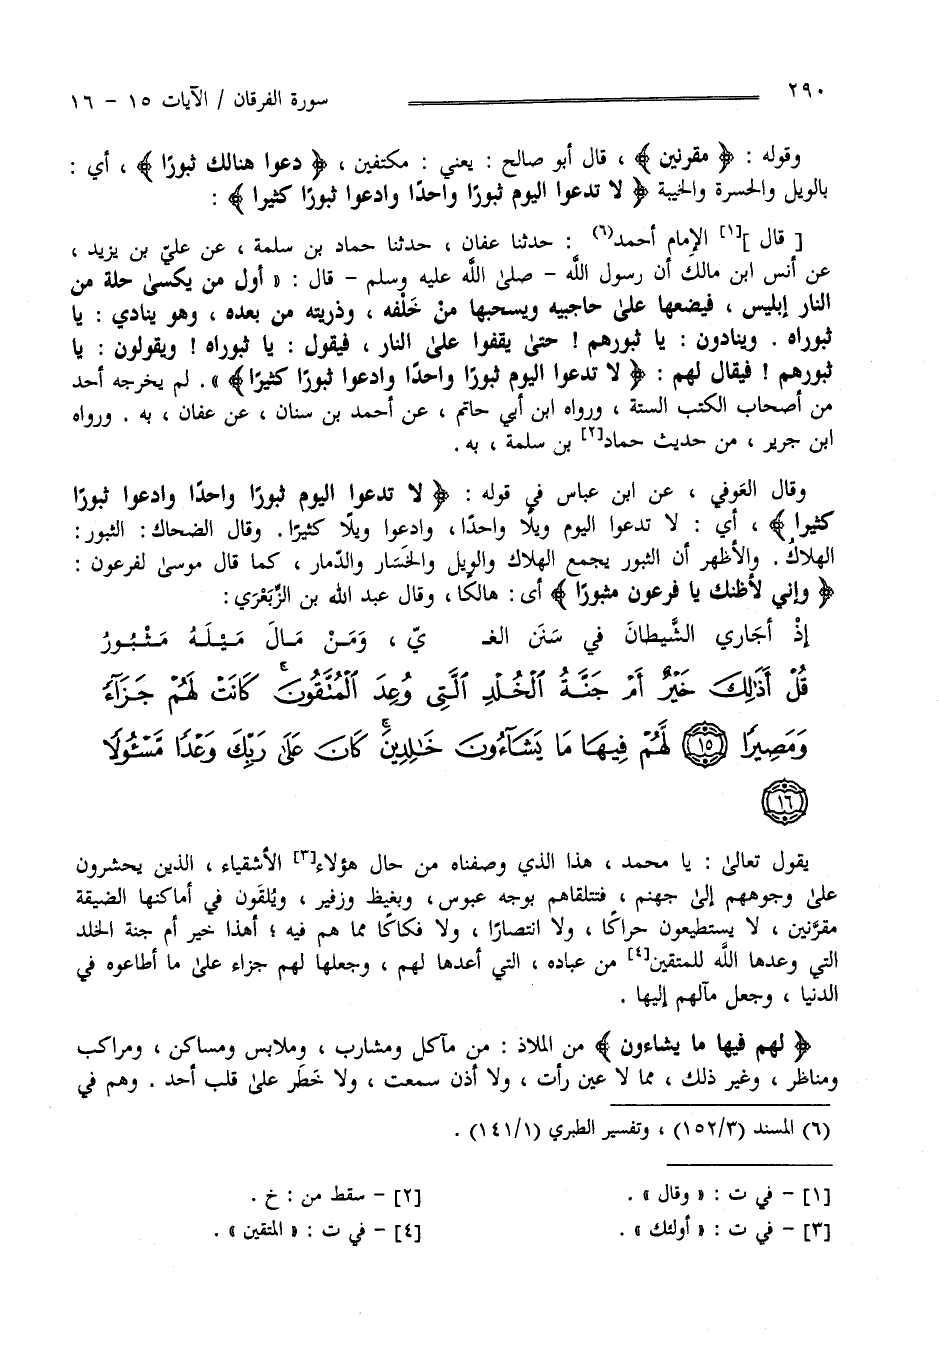 ٢٩٠ سورة الفرقان / الآيات ١٥ - ١٦
وقوله : ﴿ مقرنين ﴾ ، قال أبو صالح : يعني : مكتفين ، ﴿ دعوا هنالك ثبورًا ﴾ ، أي :
بالويل والحسرة والخيبة ﴿ لا تدعوا اليوم ثبورًا واحدًا وادعوا ثبورًا كثيرا ﴾ :
[ قال ][١] الإمام أحمد(٦) : حدثنا عفان ، حدثنا حماد بن سلمة ، عن عليّ بن يزيد ،
عن أنس ابن مالك أن رسول اللَّه - صلىٰ اللَّه عليه وسلم - قال : « أول من يكسىٰ حلة من
النار إبليس ، فيضعها علىٰ حاجبيه ويسحبها منْ خَلْفه ، وذريته من بعده ، وهو ينادي : يا
ثبوراه . وينادون : يا ثبورهم ! حتىٰ يقفوا علىٰ النار ، فيقول : يا ثبوراه ! ويقولون : يا
ثبورهم ! فيقال لهم : ﴿ لا تدعوا اليوم ثبورًا واحدًا وادعوا ثبورًا كثيرًا ﴾ ». لم يخرجه أحد
من أصحاب الكتب الستة ، ورواه ابن أبي حاتم ، عن أحمد بن سنان ، عن عفان ، به . ورواه
ابن جرير ، من حديث حماد[٢] بن سلمة ، به .
وقال العَوفي ، عن ابن عباس في قوله : ﴿ لا تدعوا اليوم ثبورًا واحدًا وادعوا ثبورًا
كثيرا ﴾ ، أي : لا تدعوا اليوم ويلًا واحدًا، وادعوا ويلًا كثيرًا. وقال الضحاك: الثبور:
الهلاكُ. والأظهر أن الثبور يجمع الهلاك والويل والخَسَار والدّمار ، كما قال موسىٰ لفرعون :
﴿ وإني لأظنك يا فرعون مثبورًا ﴾ أى: هالكًا، وقال عبد الله بن الزِّبَعْرَي:
إذْ أجَاري الشَّيطانَ في سَنَن الغـ يّ ، وَمَـنْ مَـالَ مَـيْـلَـهُ مَـثْـبُـورُ
قُلْ أَذَٰلِكَ خَيْرٌ أَمْ جَنَّةُ ٱلْخُلْدِ ٱلَّتِى وُعِدَ ٱلْمُتَّقُونَ ۚ كَانَتْ لَهُمْ جَزَآءً
وَمَصِيرًا ١٥ لَّهُمْ فِيهَا مَا يَشَآءُونَ خَٰلِدِينَ ۚ كَانَ عَلَىٰ رَبِّكَ وَعْدًا مَّسْـُٔولًا
١٦
يقول تعالىٰ : يا محمد ، هذا الذي وصفناه من حال هؤلاء[٣] الأشقياء ، الذين يحشرون
علىٰ وجوههم إلىٰ جهنم ، فتتلقاهم بوجه عبوس، وبغيظ وزفير ، ويُلقَون في أماكنها الضيقة
مقرَّنين ، لا يستطيعون حراكًا ، ولا انتصارًا ، ولا فكاكًا مما هم فيه ؛ أهذا خير أم جنة الخلد
التي وعدها اللَّه للمتقين[٤] من عباده ، التي أعدها لهم ، وجعلها لهم جزاء علىٰ ما أطاعوه في
الدنيا ، وجعل مآلهم إليها .
﴿ لهم فيها ما يشاءون ﴾ من الملاذ : من مآكل ومشارب ، وملابس ومساكن ، ومراكب
ومناظر ، وغير ذلك ، مما لا عين رأت ، ولا أذن سمعت ، ولا خَطَر علىٰ قلب أحد . وهم في
(٦) المسند (١٥٢/٣) ، وتفسير الطبري (١٤١/١) .
[١] - في ت : « وقال » . [٢] - سقط من : خ .
[٣] - في ت : « أولئك » . [٤] - في ت : « المتقين » .